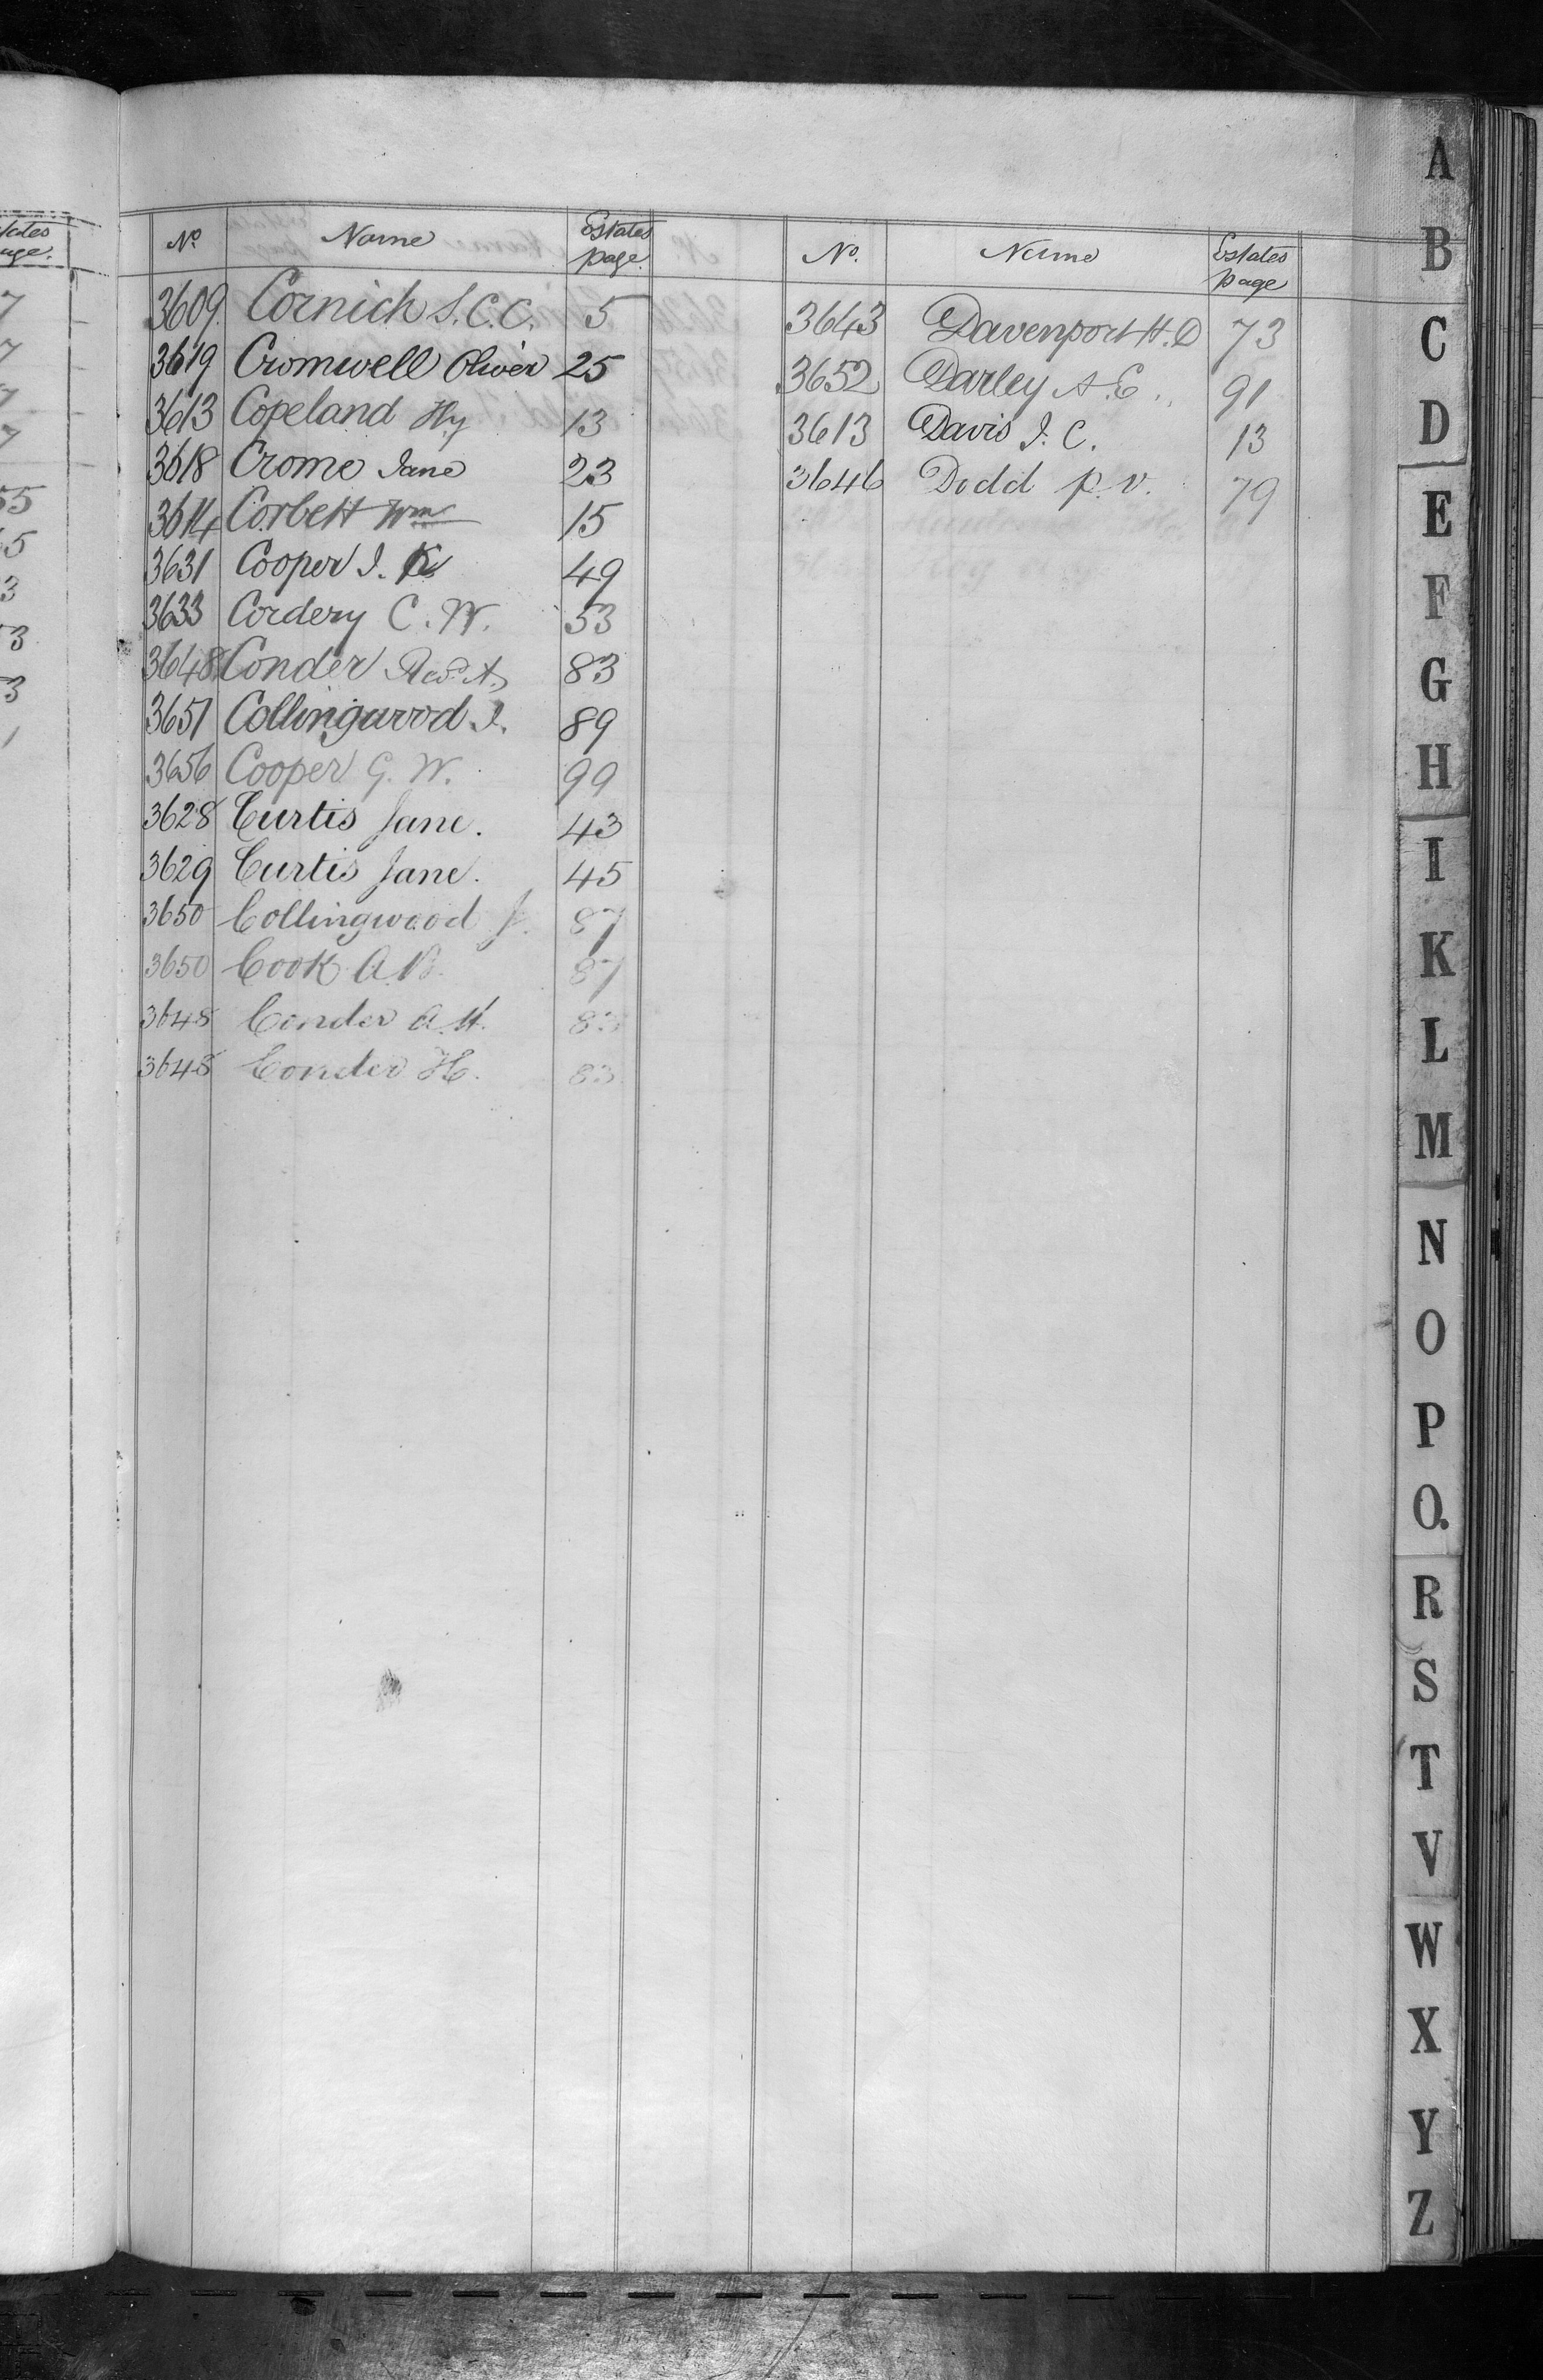 No. Name Estates page
3609 Cornich S.C.C. 5
3619 Cromwell Oliver 25
3613 Copeland Hy 13
3618 Crome Jane 23
3614 Corbett Wm 15
3631 Cooper J. K. 49
3633 Cordery C. W. 53
3648 Conder A. 83
3651 Collingwood J. 89
3656 Cooper G. W. 99
3628 Curtis Jane. 43
3629 Curtis Jane. 45
3650 Collingwood J. 87
3650 Cook A. 87
3648 Conder A. H. 83
3648 Conder H. 83
No. Name Estates page
3643 Davenport H. D 73
3652 Darley A. E. 91
3613 Davis J. C. 13
3646 Dodd P. V. 79
A
B
C
D
E
F
G
H
I
K
L
M
N
O
P
Q.
R
S
T
V
W
X
Y
Z